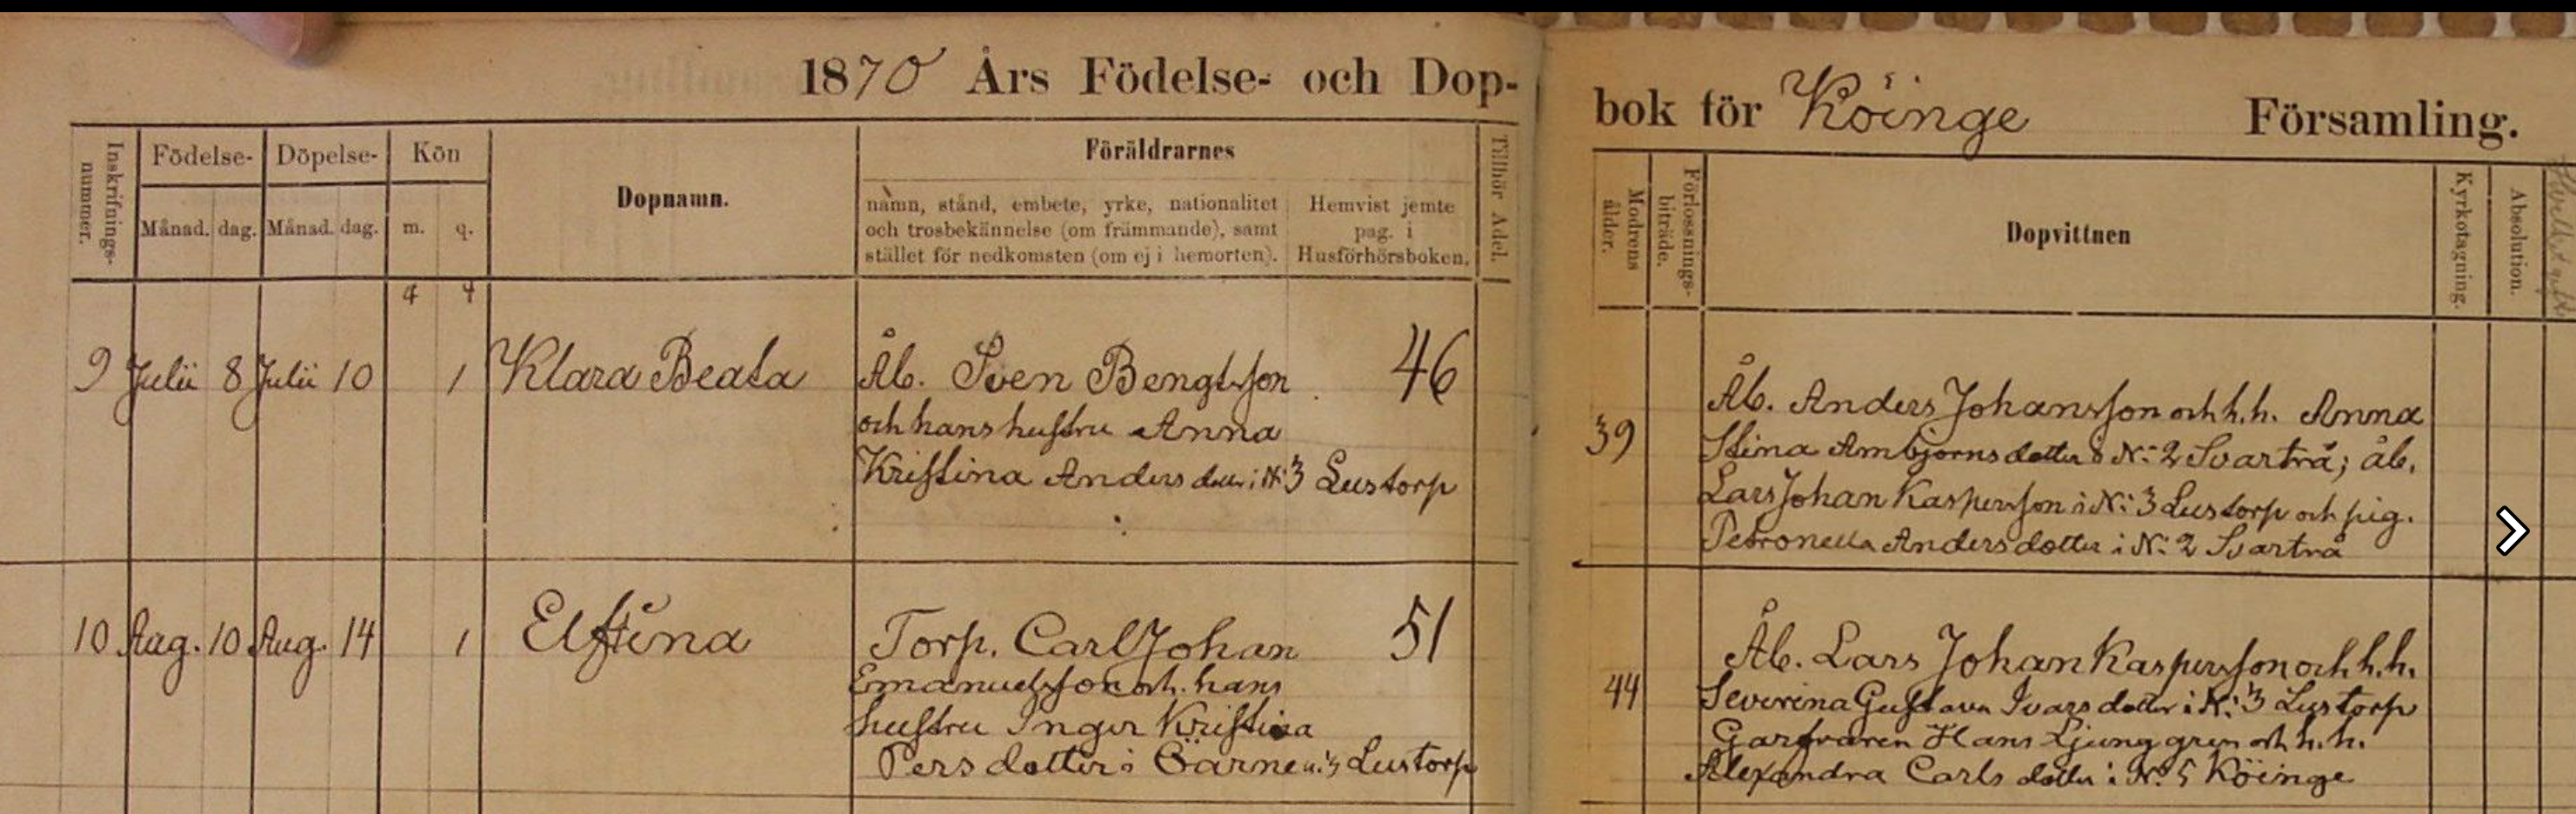 1870 Års Födelse- och Dop-
bok för Köinge Församling.
Inskrifnings-
nummer.
Födelse-
Månad. dag.
Döpelse-
Månad. dag.
Kön
m. q.
Dopnamn.
Föräldrarnes
namn, stånd, embete, yrke, nationalitet
och trosbekännelse (om främmande), samt
stället för nedkomsten (om ej i hemorten).
Hemvist jemte
pag. i
Husförhörsboken.
Tillhör Adel.
Modrens
ålder.
Förlossnings-
biträde.
Dopvittnen
Kyrkotagning.
Absolution.
4 4
9 Julii 8 Julii 10 1 Klara Beata
Åb. Sven Bengtsson 46
och hans hustru Anna
Kristina Andersdotter i N:3 Lustorp
39
Åb. Anders Johansson och h.h. Anna
Stina Ambjörnsdotter i N:2 Svartrå; åb.
Lars Johan Kaspersson i N:3 Lustorp och pig.
Petronella Andersdotter i N:2 Svartrå
10 Aug. 10 Aug. 14 1 Elftina
Torp. Carl Johan 51
Emanuelsson och hans
hustru Inger Kristina
Persdotter i N:3 Lustorp
44
Åb. Lars Johan Kaspersson och h.h.
Severina Gustava Ivarsdotter i N:3 Lustorp
Garfvaren Hans Ljunggren och h.h.
Alexandra Carlsdotter i N:5 Köinge